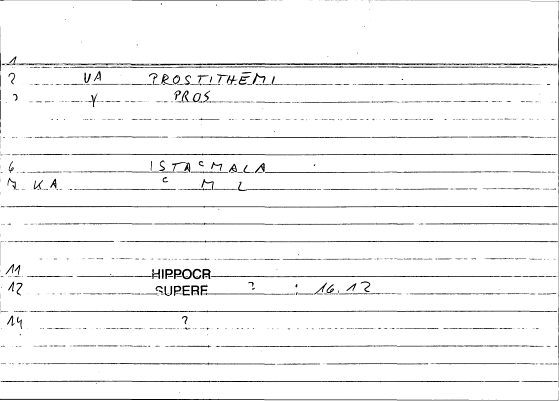 1
2 UA PROSTITHĒMI
3 Y PROS
6 ISTAᶜMALA
7 KA ᶜ M L
11 HIPPOCR
12 SUPERF ? : 16.12
14 ?